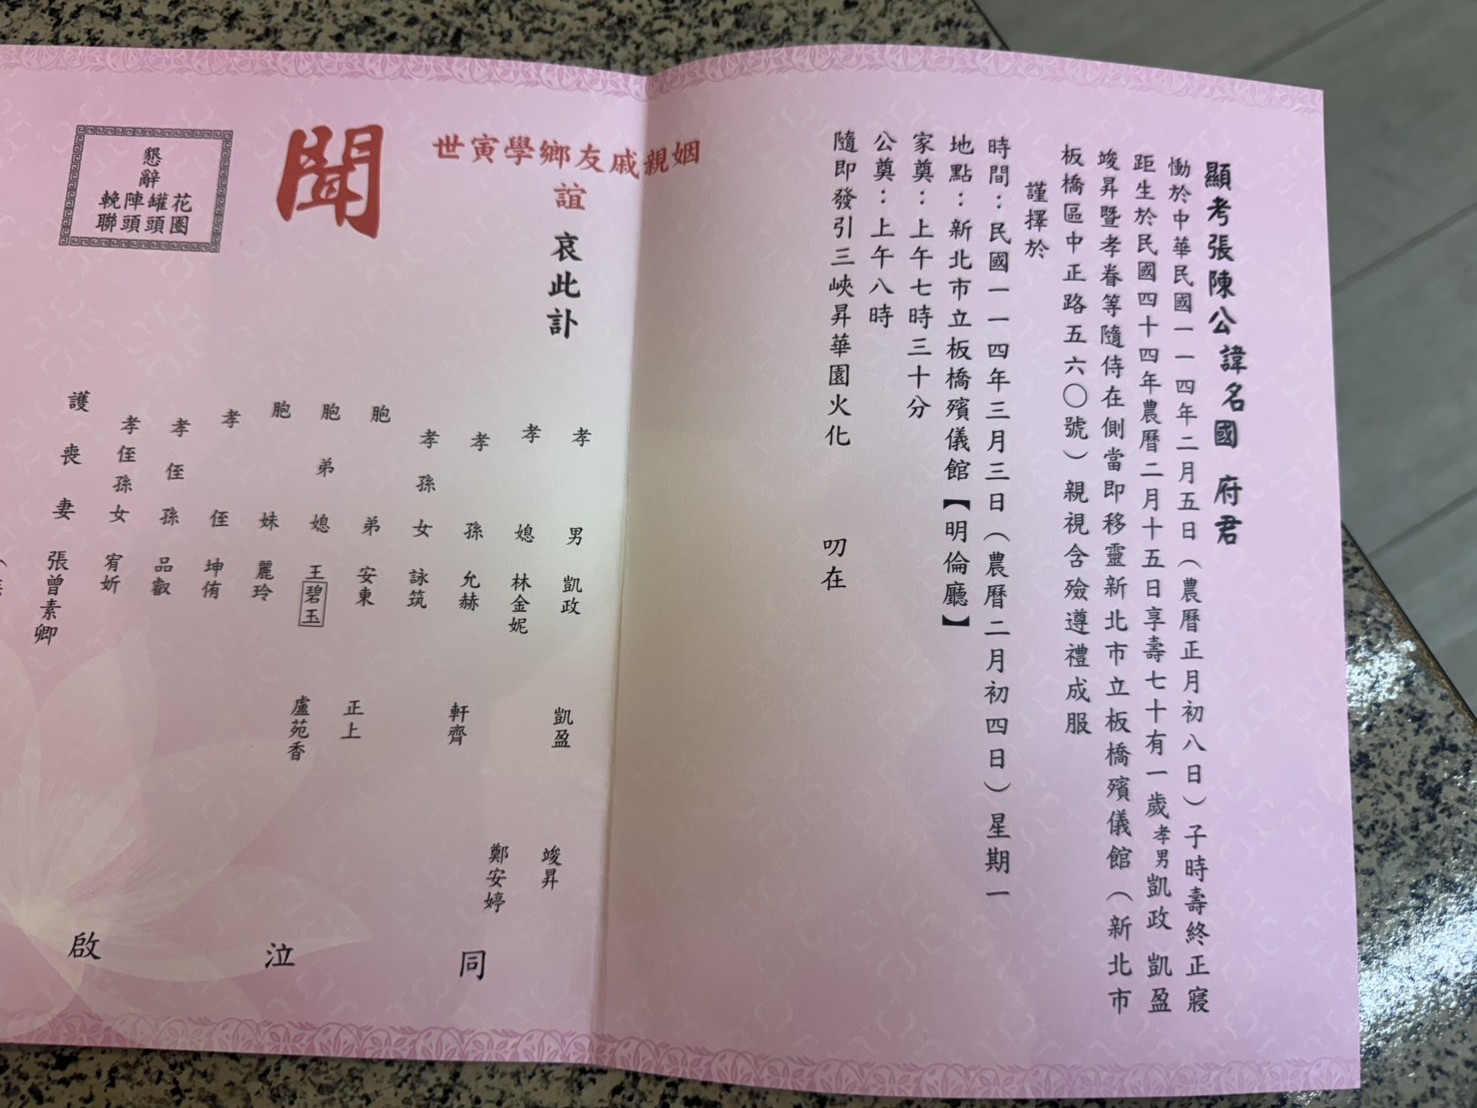 顯考張陳公諱名國 府君
慟於中華民國一一四年二月五日（農曆正月初八日）子時壽終正寢
距生於民國四十四年農曆二月十五日享壽七十有一歲孝男凱政 凱盈
竣昇暨孝眷等隨侍在側當即移靈新北市立板橋殯儀館（新北市
板橋區中正路五六〇號）親視含殮遵禮成服
謹擇於
時間：民國一一四年三月三日（農曆二月初四日）星期一
地點：新北市立板橋殯儀館【明倫廳】
家奠：上午七時三十分
公奠：上午八時
隨即發引三峽昇華園火化
叨在
姻親戚友鄉學寅世
誼
哀此訃
聞
懇辭
花圈
罐頭
陣頭
輓聯
孝男 凱政 凱盈 竣昇
孝媳 林金妮 鄭安婷
孝孫 允赫 軒齊
孝孫女 詠筑
胞弟 安東 正上
胞弟媳 王碧玉 盧苑香
胞妹 麗玲
孝侄 坤侑
孝侄孫 品叡
孝侄孫女 宥妡
護喪妻 張曾素卿
同泣啟